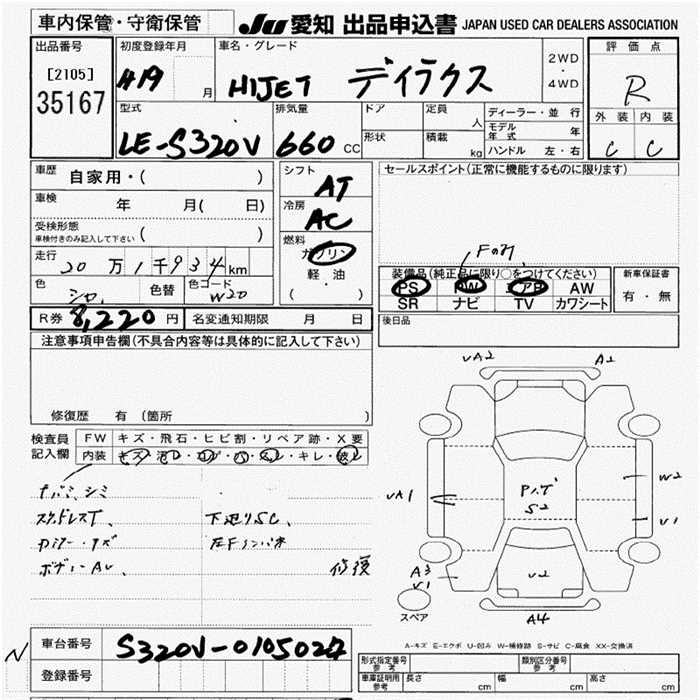 車内保管・守衛保管
JU 愛知 出品申込書 JAPAN USED CAR DEALERS ASSOCIATION
出品番号
[2105]
35167
初度登録年月
H19 月
車名・グレード
HIJET デイラクス
2WD
・
4WD
評価点
R
外装 内装
C C
型式
LE-S320V
排気量
660 CC
ドア
形状
定員 人
積載 kg
ディーラー・並行
モデル年式 年
ハンドル 左・右
車歴
自家用・( )
車検 年 月( 日)
受検形態
車検付きのみ記入して下さい ( )
走行
20万1千934km
色
シロ
色替
色コード
W20
シフト
AT
冷房
AC
燃料
ガソリン
軽・油
( )
セールスポイント(正常に機能するものに限ります)
Fのみ
装備品(純正品に限り○をつけてください)
PS PW エアB AW
SR ナビ TV カワシート
新車保証書
有・無
R券 8,220円
名変通知期限 月 日
後日品
注意事項申告欄(不具合内容等は具体的に記入して下さい)
修復歴 有(箇所
検査員
記入欄
FW キズ・飛石・ヒビ割・リペア跡・X要
内装
シミ
スタッドレスT、
下廻りSC、
ボデーAU、
修復
UA2 A2
UA1
W2
U1
A3
U1
U2
A4
S2
スペア
A-キズ E-エクボ U-凹み W-補修跡 S-サビ C-腐食 XX-交換済
N
車台番号
S320V-0105027
登録番号
形式指定番号
参考
類別区分番号
参考
車庫証明用
参考
長さ cm
幅 cm
高さ cm